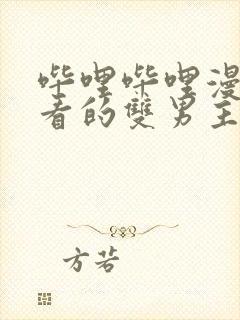 哔哩哔哩漫
看的雙男主
方若